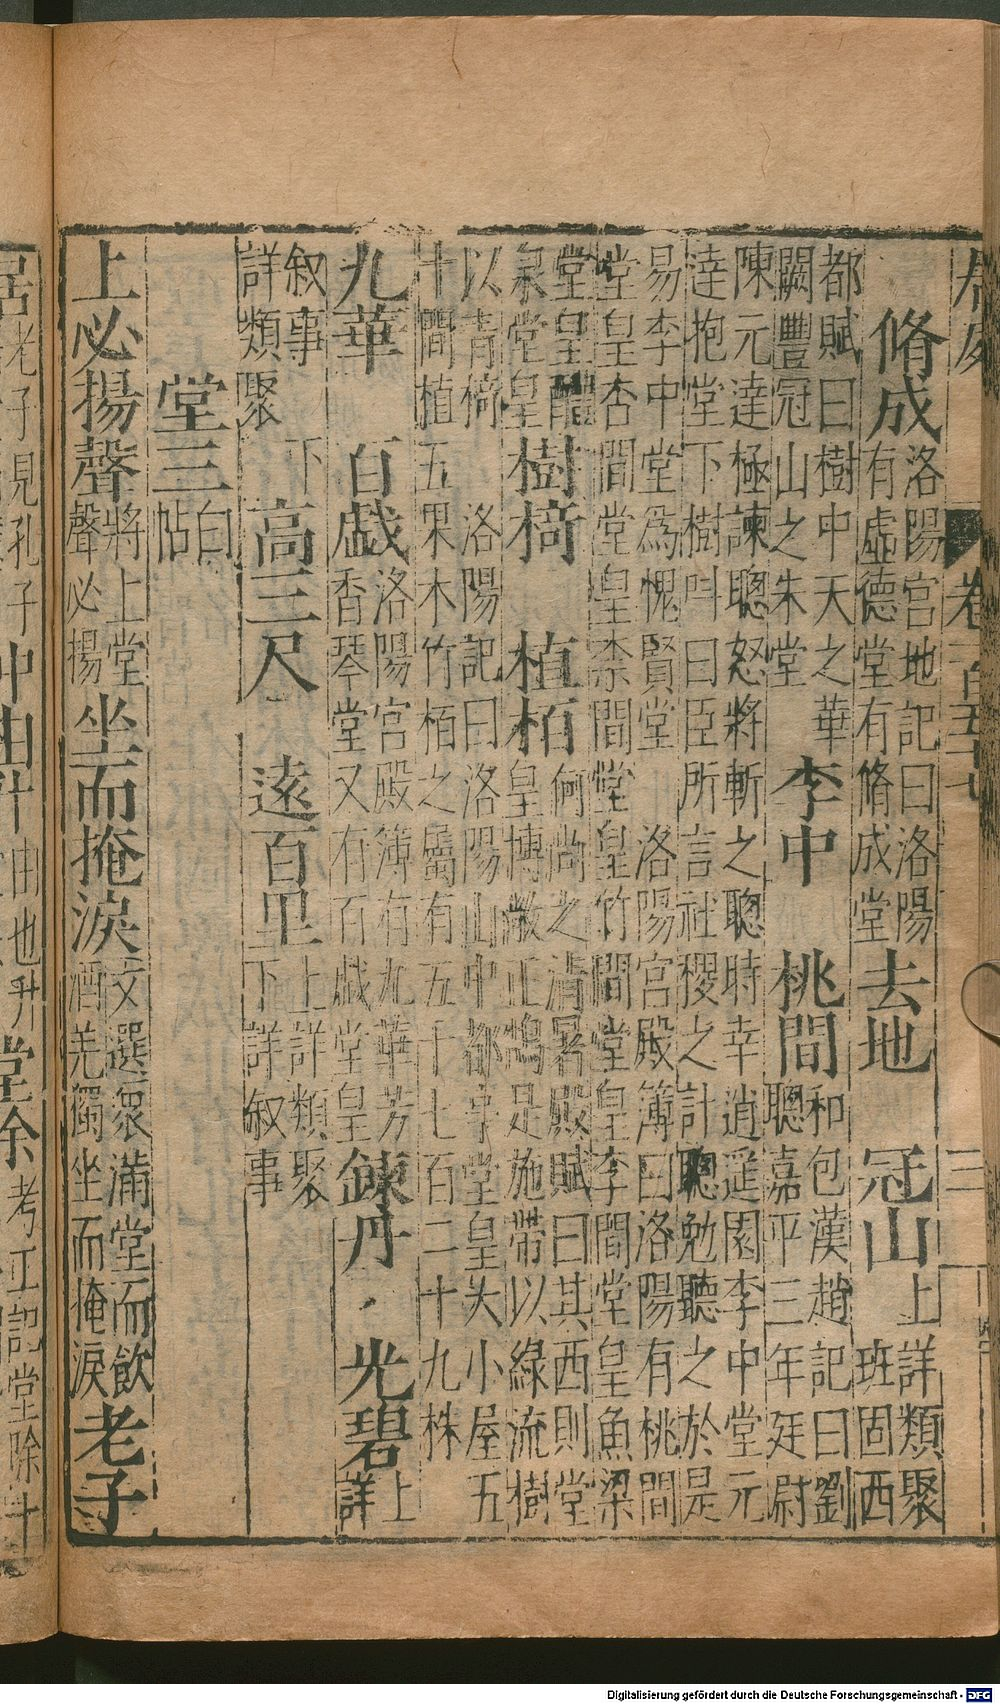 居處 卷一百五十七 三
脩成 洛陽宮地記曰洛陽
有虛德堂有脩成堂 去地 冠山 上詳類聚
班固西
都賦曰樹中天之華
闕豐冠山之朱堂 李中 桃間 和包漢趙記曰劉
聰嘉平三年廷尉
陳元達極諫聰怒將斬之聰時幸逍遥園李中堂元
達抱堂下樹呌曰臣所言社稷之計聰勉聽之於是
易李中堂爲愧賢堂 洛陽宮殿簿曰洛陽有桃間
堂皇杏間堂皇柰間堂皇竹間堂皇李間堂皇魚梁
堂皇醴
泉堂皇 樹椅 植栢 何尚之清暑殿賦曰其西則堂
皇博敞正鵠是施帶以綠流樹
以青椅 洛陽記曰洛陽山中都亭堂皇大小屋五
十間植五果木竹栢之屬有五千七百二十九株
九華 百戯 洛陽宮殿簿有九華芳
香琴堂又有百戯堂皇 錬丹 光碧 上
詳
叙事 下
詳類聚 高三尺 遠百里 上詳類聚
下詳叙事
堂三 白
帖
上必揚聲 將上堂
聲必揚 坐而掩淚 文選衆滿堂而飲
酒羌獨坐而掩淚 老子
Digitalisierung gefördert durch die Deutsche Forschungsgemeinschaft - DFG